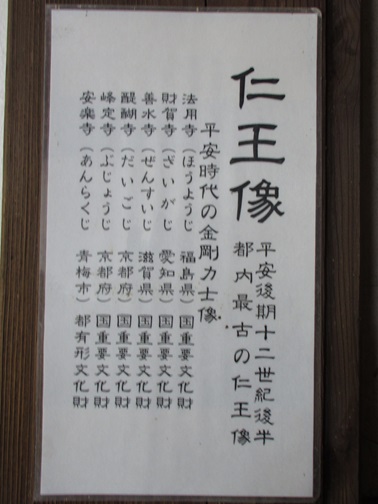 仁王像
平安後期十二世紀後半
都内最古の仁王像
平安時代の金剛力士像
法用寺（ほうようじ　福島県）国重要文化財
財賀寺（ざいがじ　愛知県）国重要文化財
善水寺（ぜんすいじ　滋賀県）国重要文化財
醍醐寺（だいごじ　京都府）国重要文化財
峰定寺（ぶじょうじ　京都府）国重要文化財
安楽寺（あんらくじ　青梅市）都有形文化財